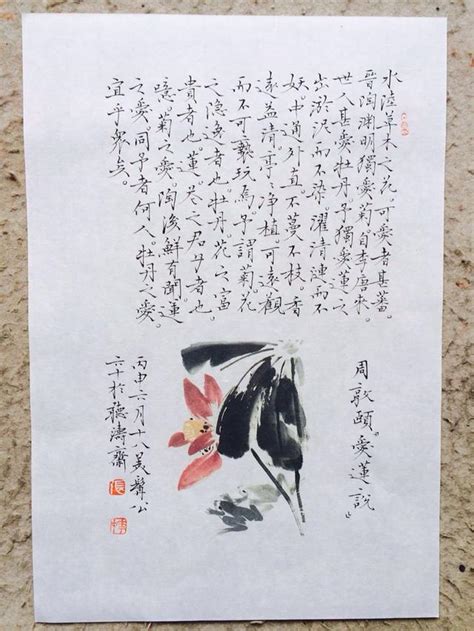 水陸草木之花。可愛者甚蕃。
晉陶渊明獨愛菊。自李唐來。
世人甚愛牡丹。予獨愛蓮之
出淤泥而不染。濯清漣而不
妖。中通外直。不蔓不枝。香
遠益清。亭亭淨植。可遠觀
而不可褻玩焉。予謂菊花
之隐逸者也。牡丹。花之富
貴者也。蓮。花之君子者也
噫。菊之愛。陶後鮮有聞。蓮
之愛。同予者何人。牡丹之愛。
宜乎衆矣。
周敦頤。愛蓮說
丙申六月十八美髯公
六十於聽濤齋